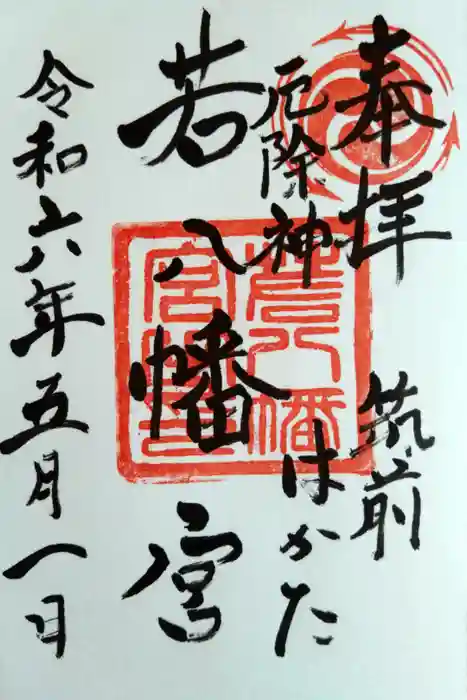 奉拝 筑前
厄除神 はかた
若八幡宮
令和六年五月一日
若八幡宮